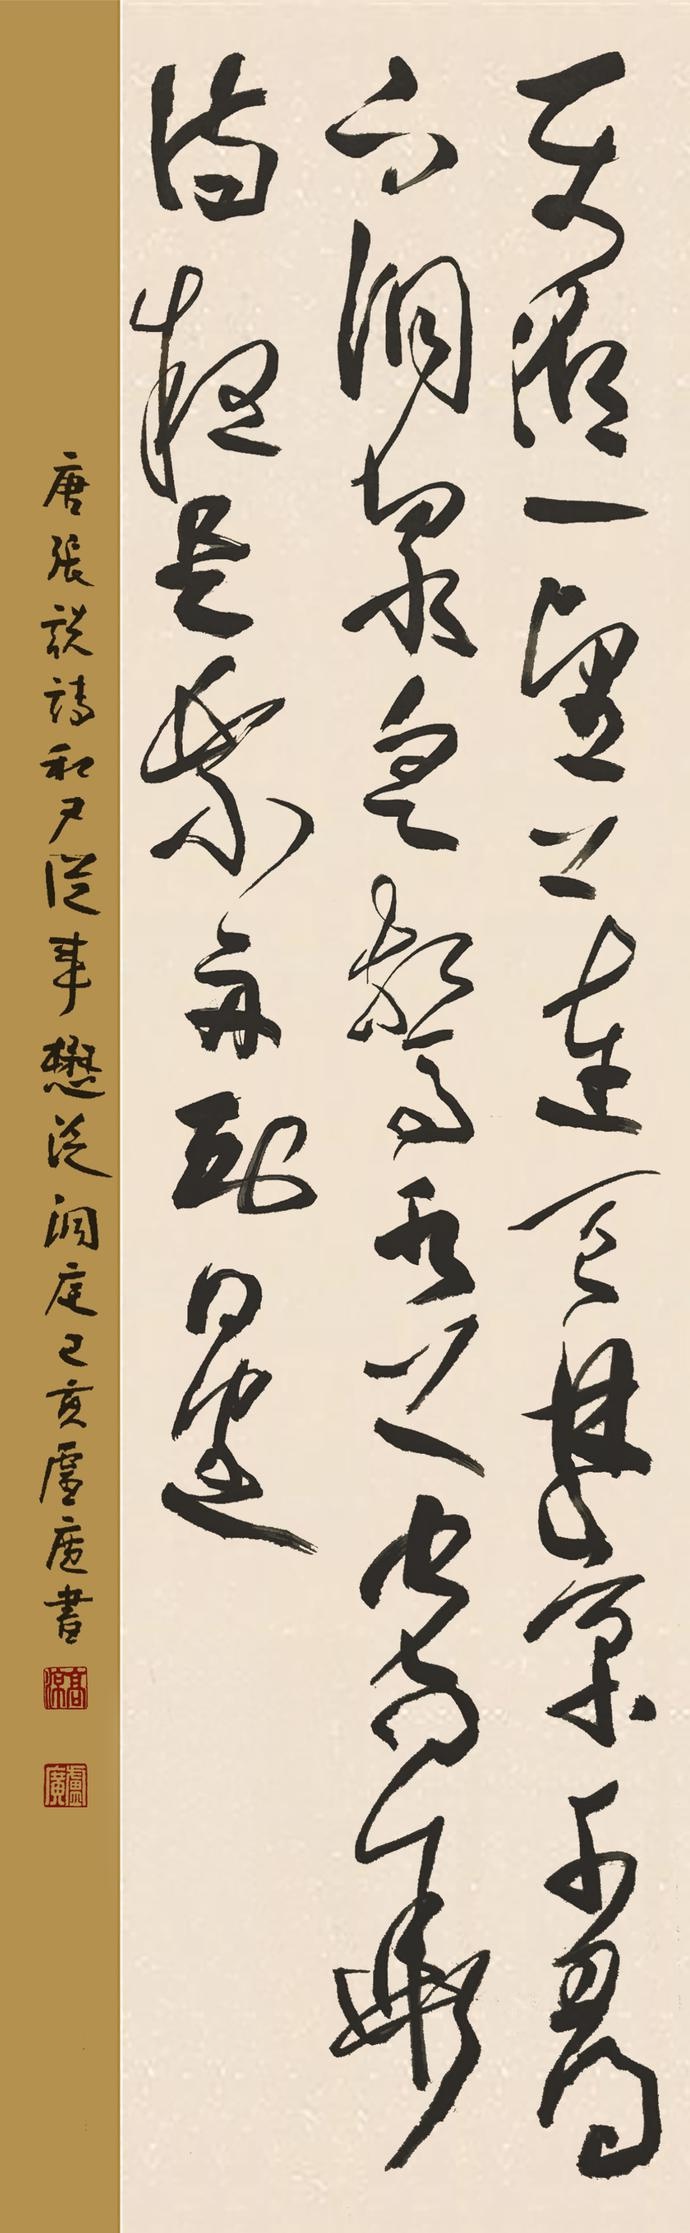 平湖一望上連天林景千尋
下洞泉忽驚水上光華
滿疑是乘舟到日邊
唐張説詩和尹從事懋泛洞庭己亥盧廣書
高凉
盧廣